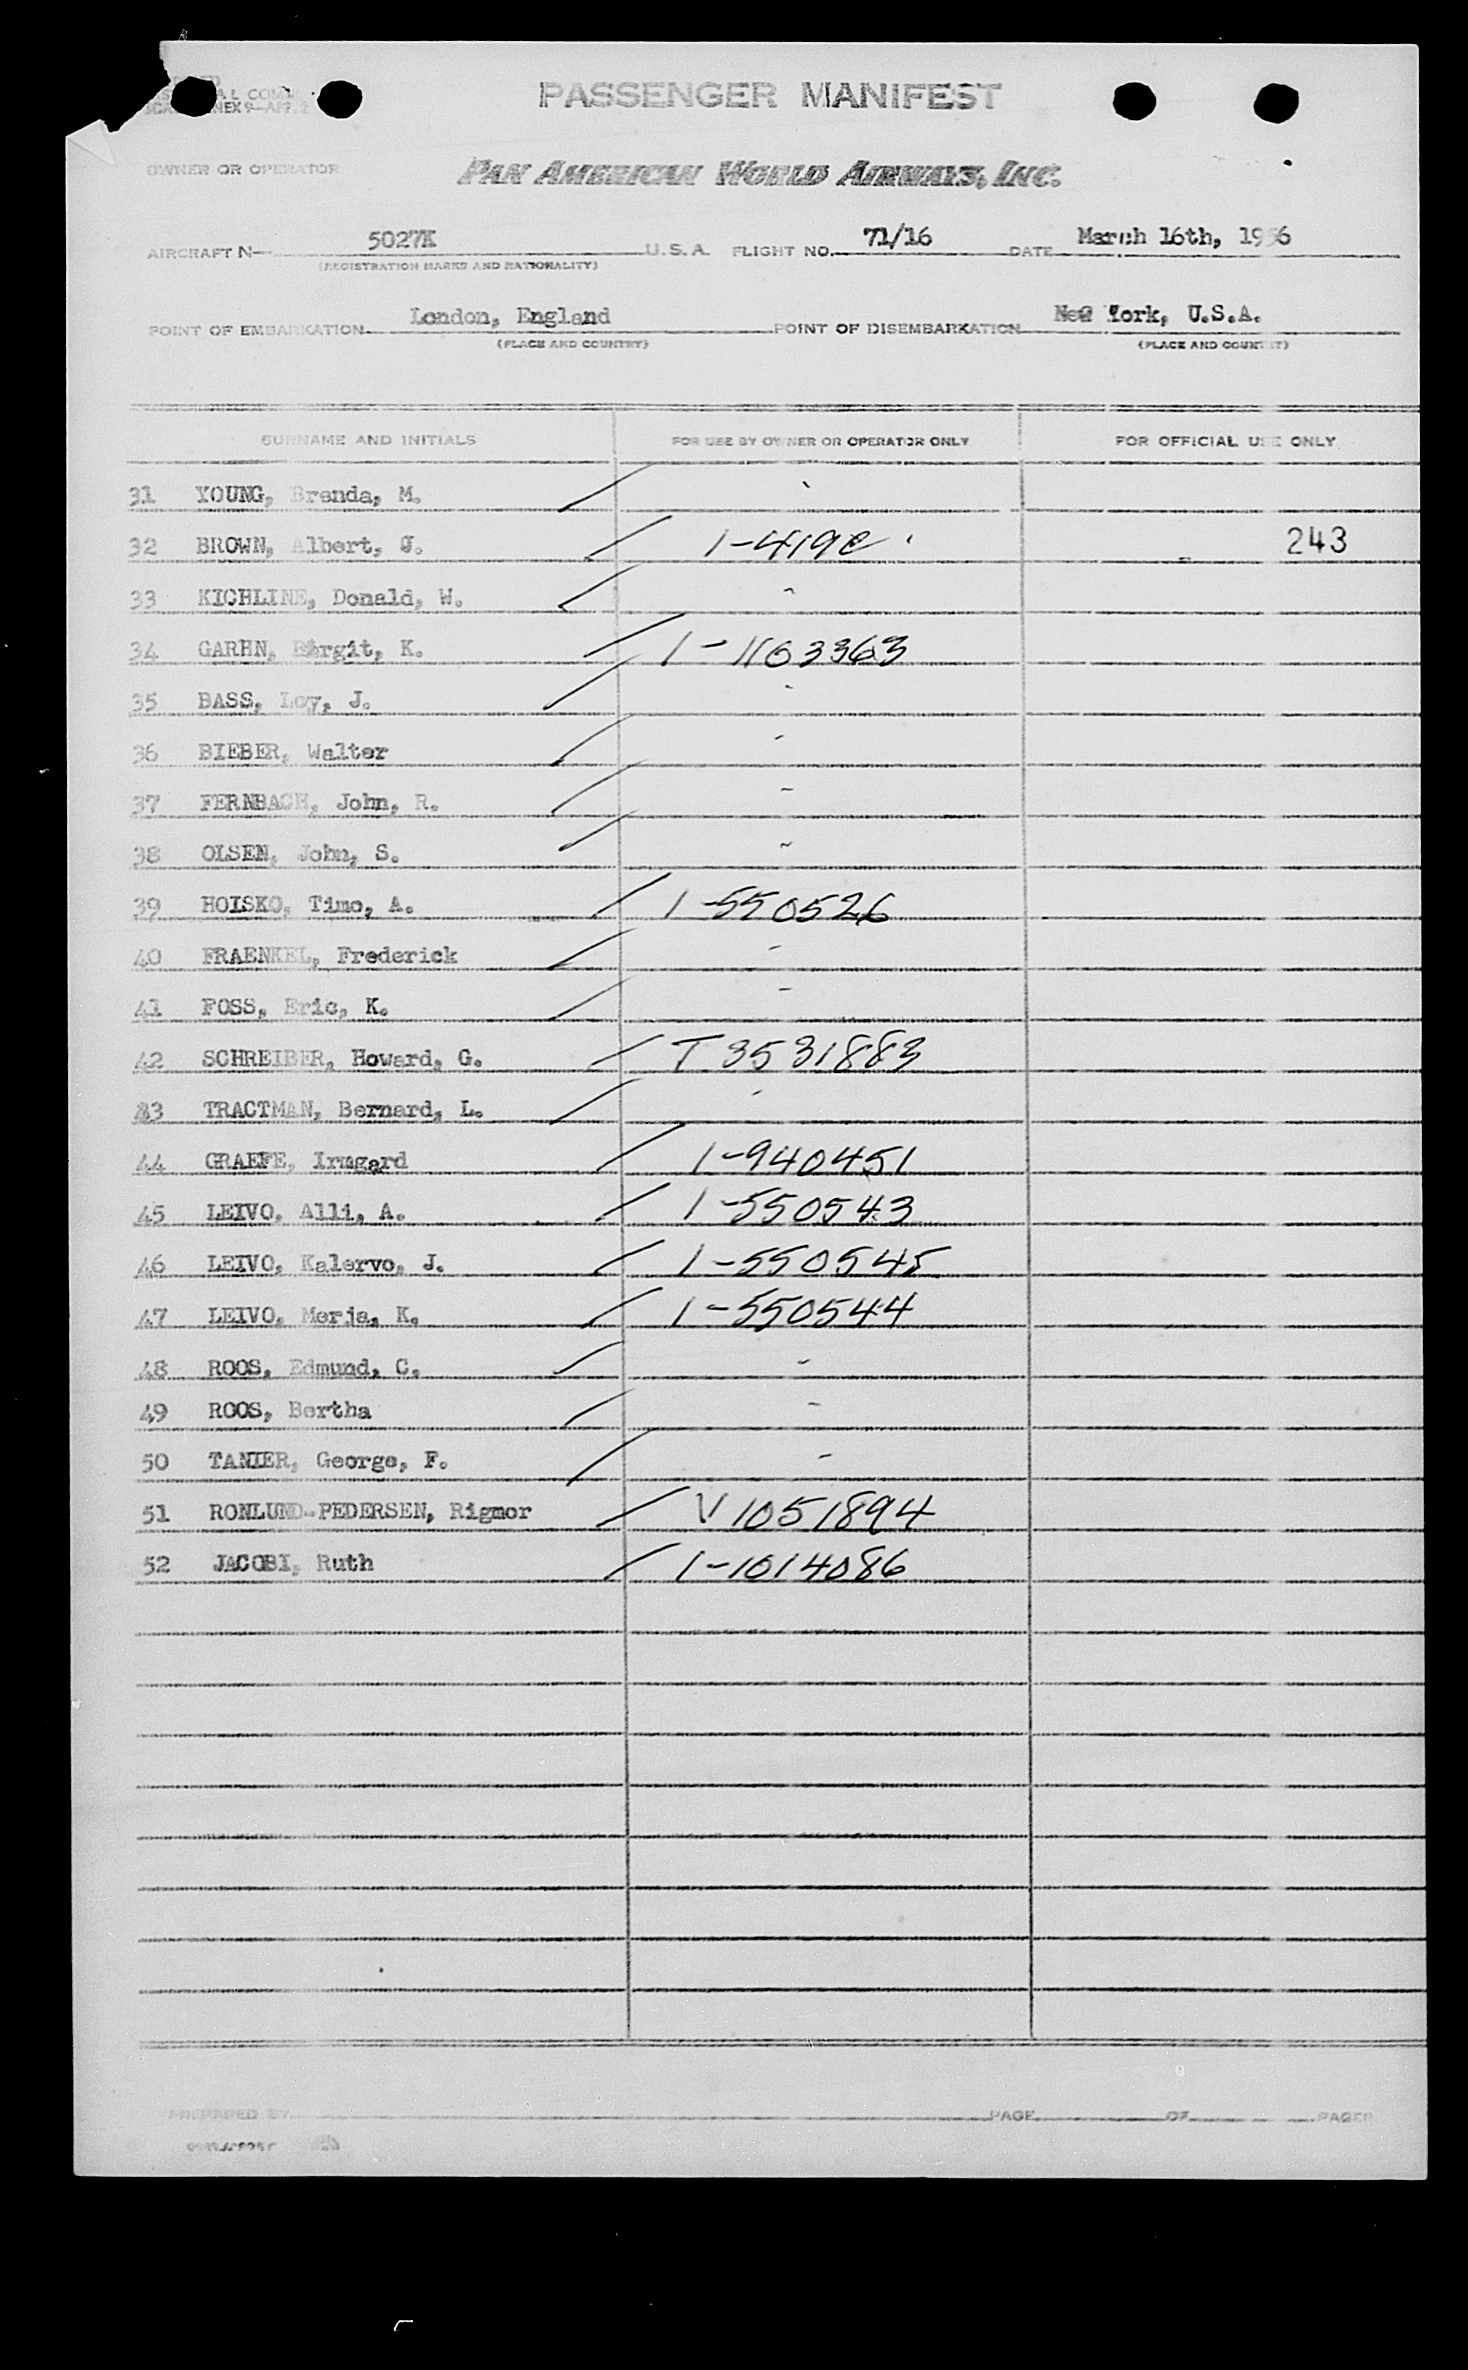 PASSENGER MANIFEST
OWNER OR OPERATOR PAN AMERICAN WORLD AIRWAYS, INC.
AIRCRAFT N— 5027K U.S.A. FLIGHT NO. 71/16 DATE March 16th, 1956
(REGISTRATION MARKS AND NATIONALITY)
POINT OF EMBARKATION London, England POINT OF DISEMBARKATION New York, U.S.A.
(PLACE AND COUNTRY) (PLACE AND COUNTRY)
SURNAME AND INITIALS FOR USE BY OWNER OR OPERATOR ONLY FOR OFFICIAL USE ONLY
31 YOUNG, Brenda, M. /
32 BROWN, Albert, G. / 1-419e 243
33 KICHLINE, Donald, W. / -
34 GARHN, Birgit, K. / 1-1163363
35 BASS, Loy, J. / -
36 BIEBER, Walter / -
37 FERNBACH, John, R. / -
38 OLSEN, John, S. / -
39 HOISKO, Timo, A. / 1-550526
40 FRAENKEL, Frederick / -
41 FOSS, Eric, K. / -
42 SCHREIBER, Howard, G. / T 3531883
43 TRACTMAN, Bernard, L. / -
44 GRAEFE, Irmgard / 1-940451
45 LEIVO, Alli, A. / 1-550543
46 LEIVO, Kalervo, J. / 1-550545
47 LEIVO, Merja, K. / 1-550544
48 ROOS, Edmund, C. / -
49 ROOS, Bertha / -
50 TANIER, George, F. / -
51 RONLUND-PEDERSEN, Rigmor / V1051894
52 JACOBI, Ruth / 1-1014086
PREPARED BY PAGE OF PAGES